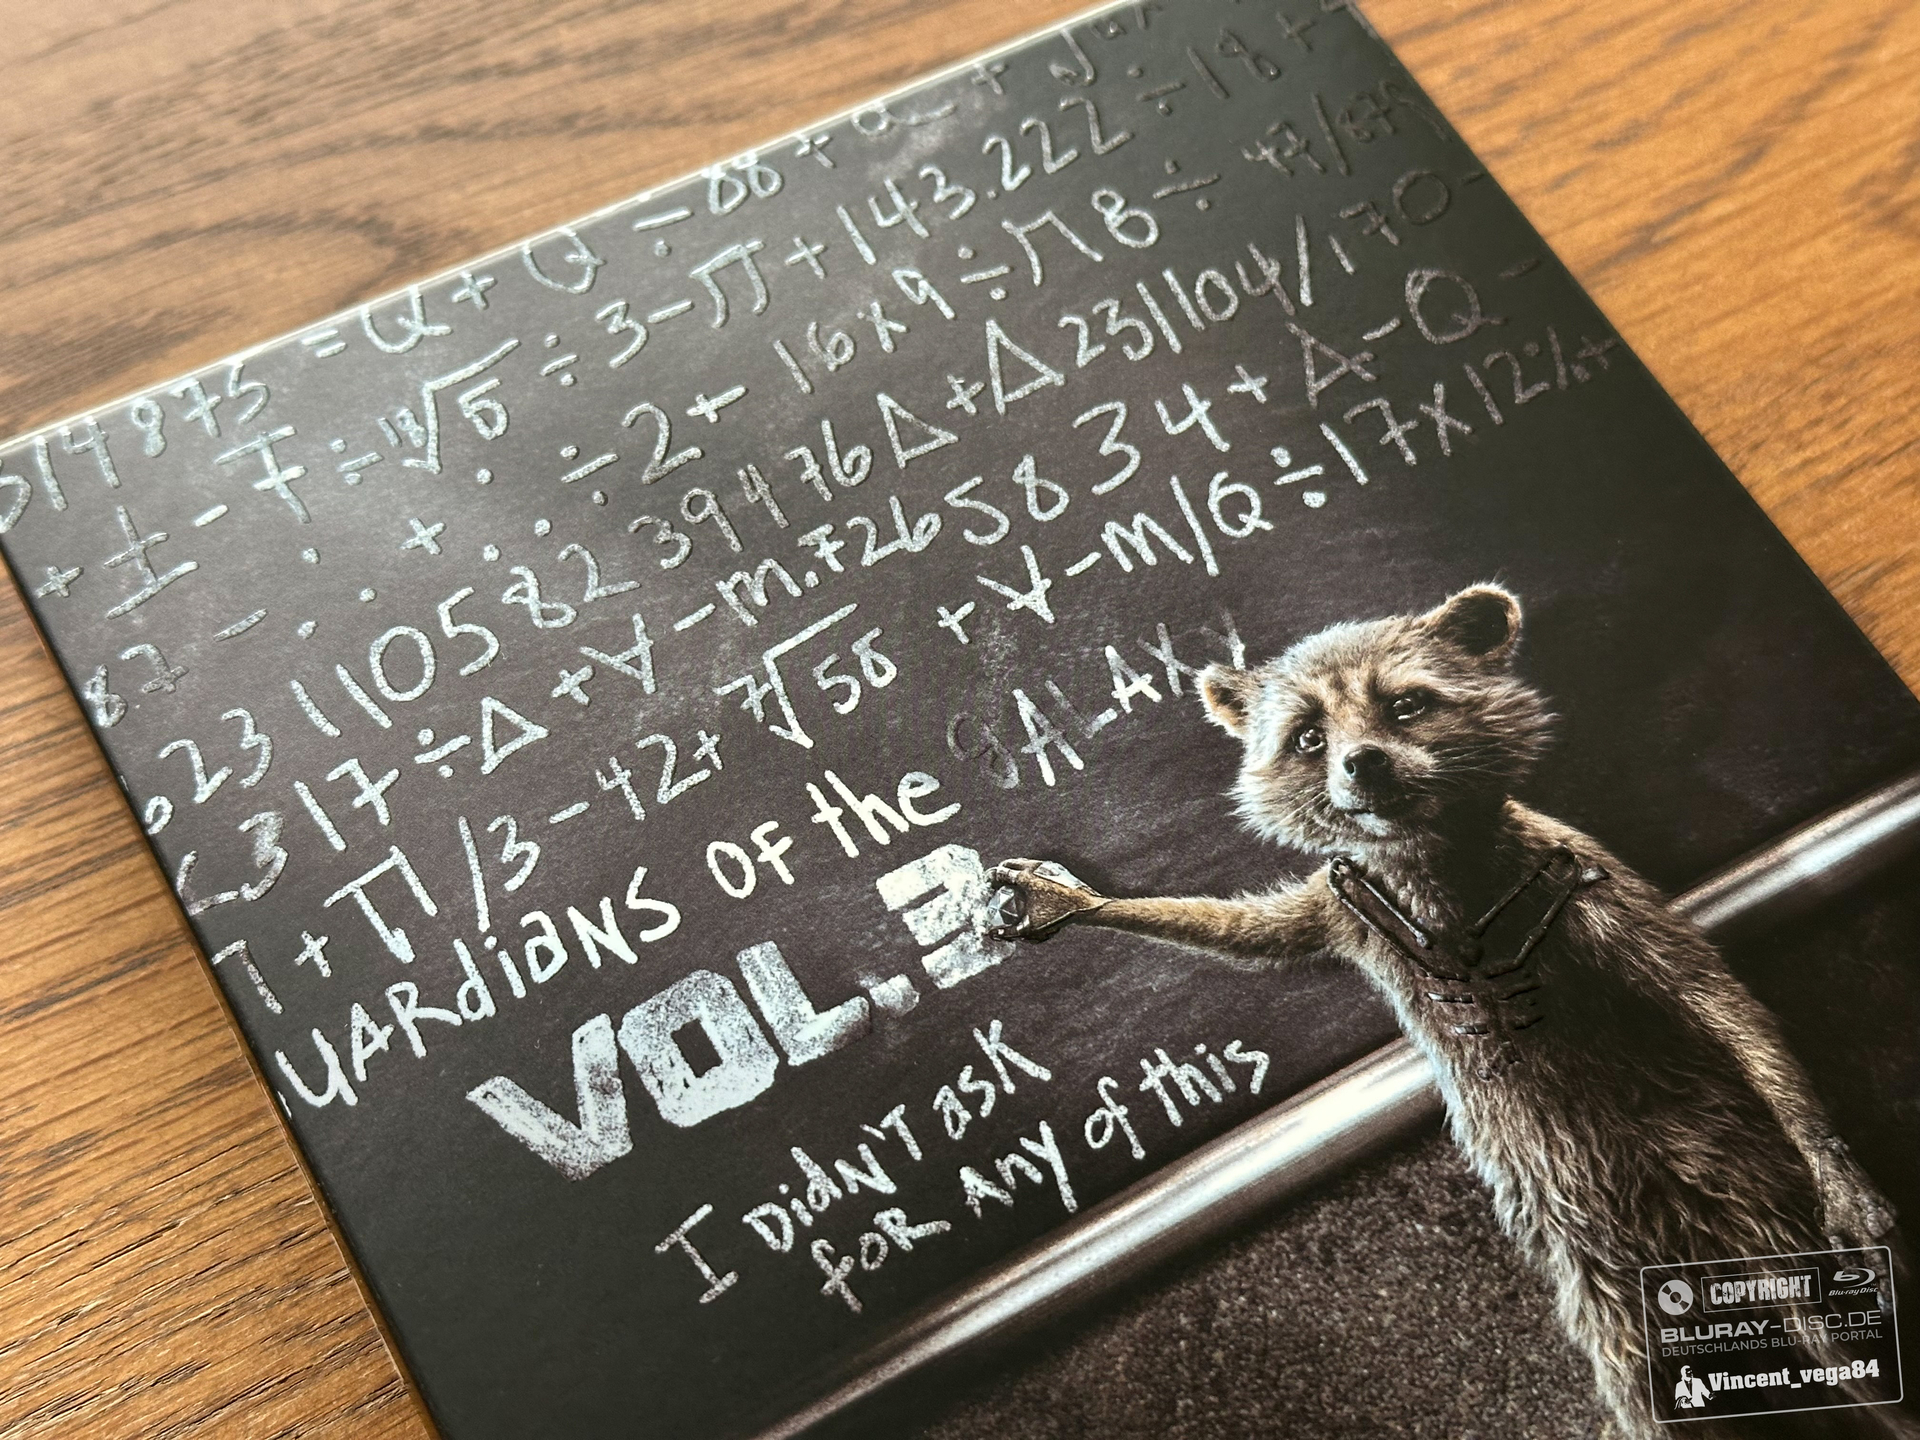 314875 = Q + Q ÷ 88 +
+ ± - T ÷ ¹³√5 ÷ 3 - π + 143.222 ÷ 18 +
87 - ÷ + ÷ ÷ 2 + 16 x 9 ÷ π 8 ÷ 47/875
023 1105823 9476 Δ + Δ 231104/170 -
<317 ÷ Δ + ∀ - m.7265834 + Δ - Q -
7 + π/3 - 42 + ⁷√58 + ∀ - m/Q ÷ 17 x 12%+
UARdiANS OF the GALAXY
VOL. 3
I DidN'T ask
foR ANY of this
COPYRIGHT Blu-ray Disc
BLURAY-DISC.DE
DEUTSCHLANDS BLU-RAY PORTAL
Vincent_vega84